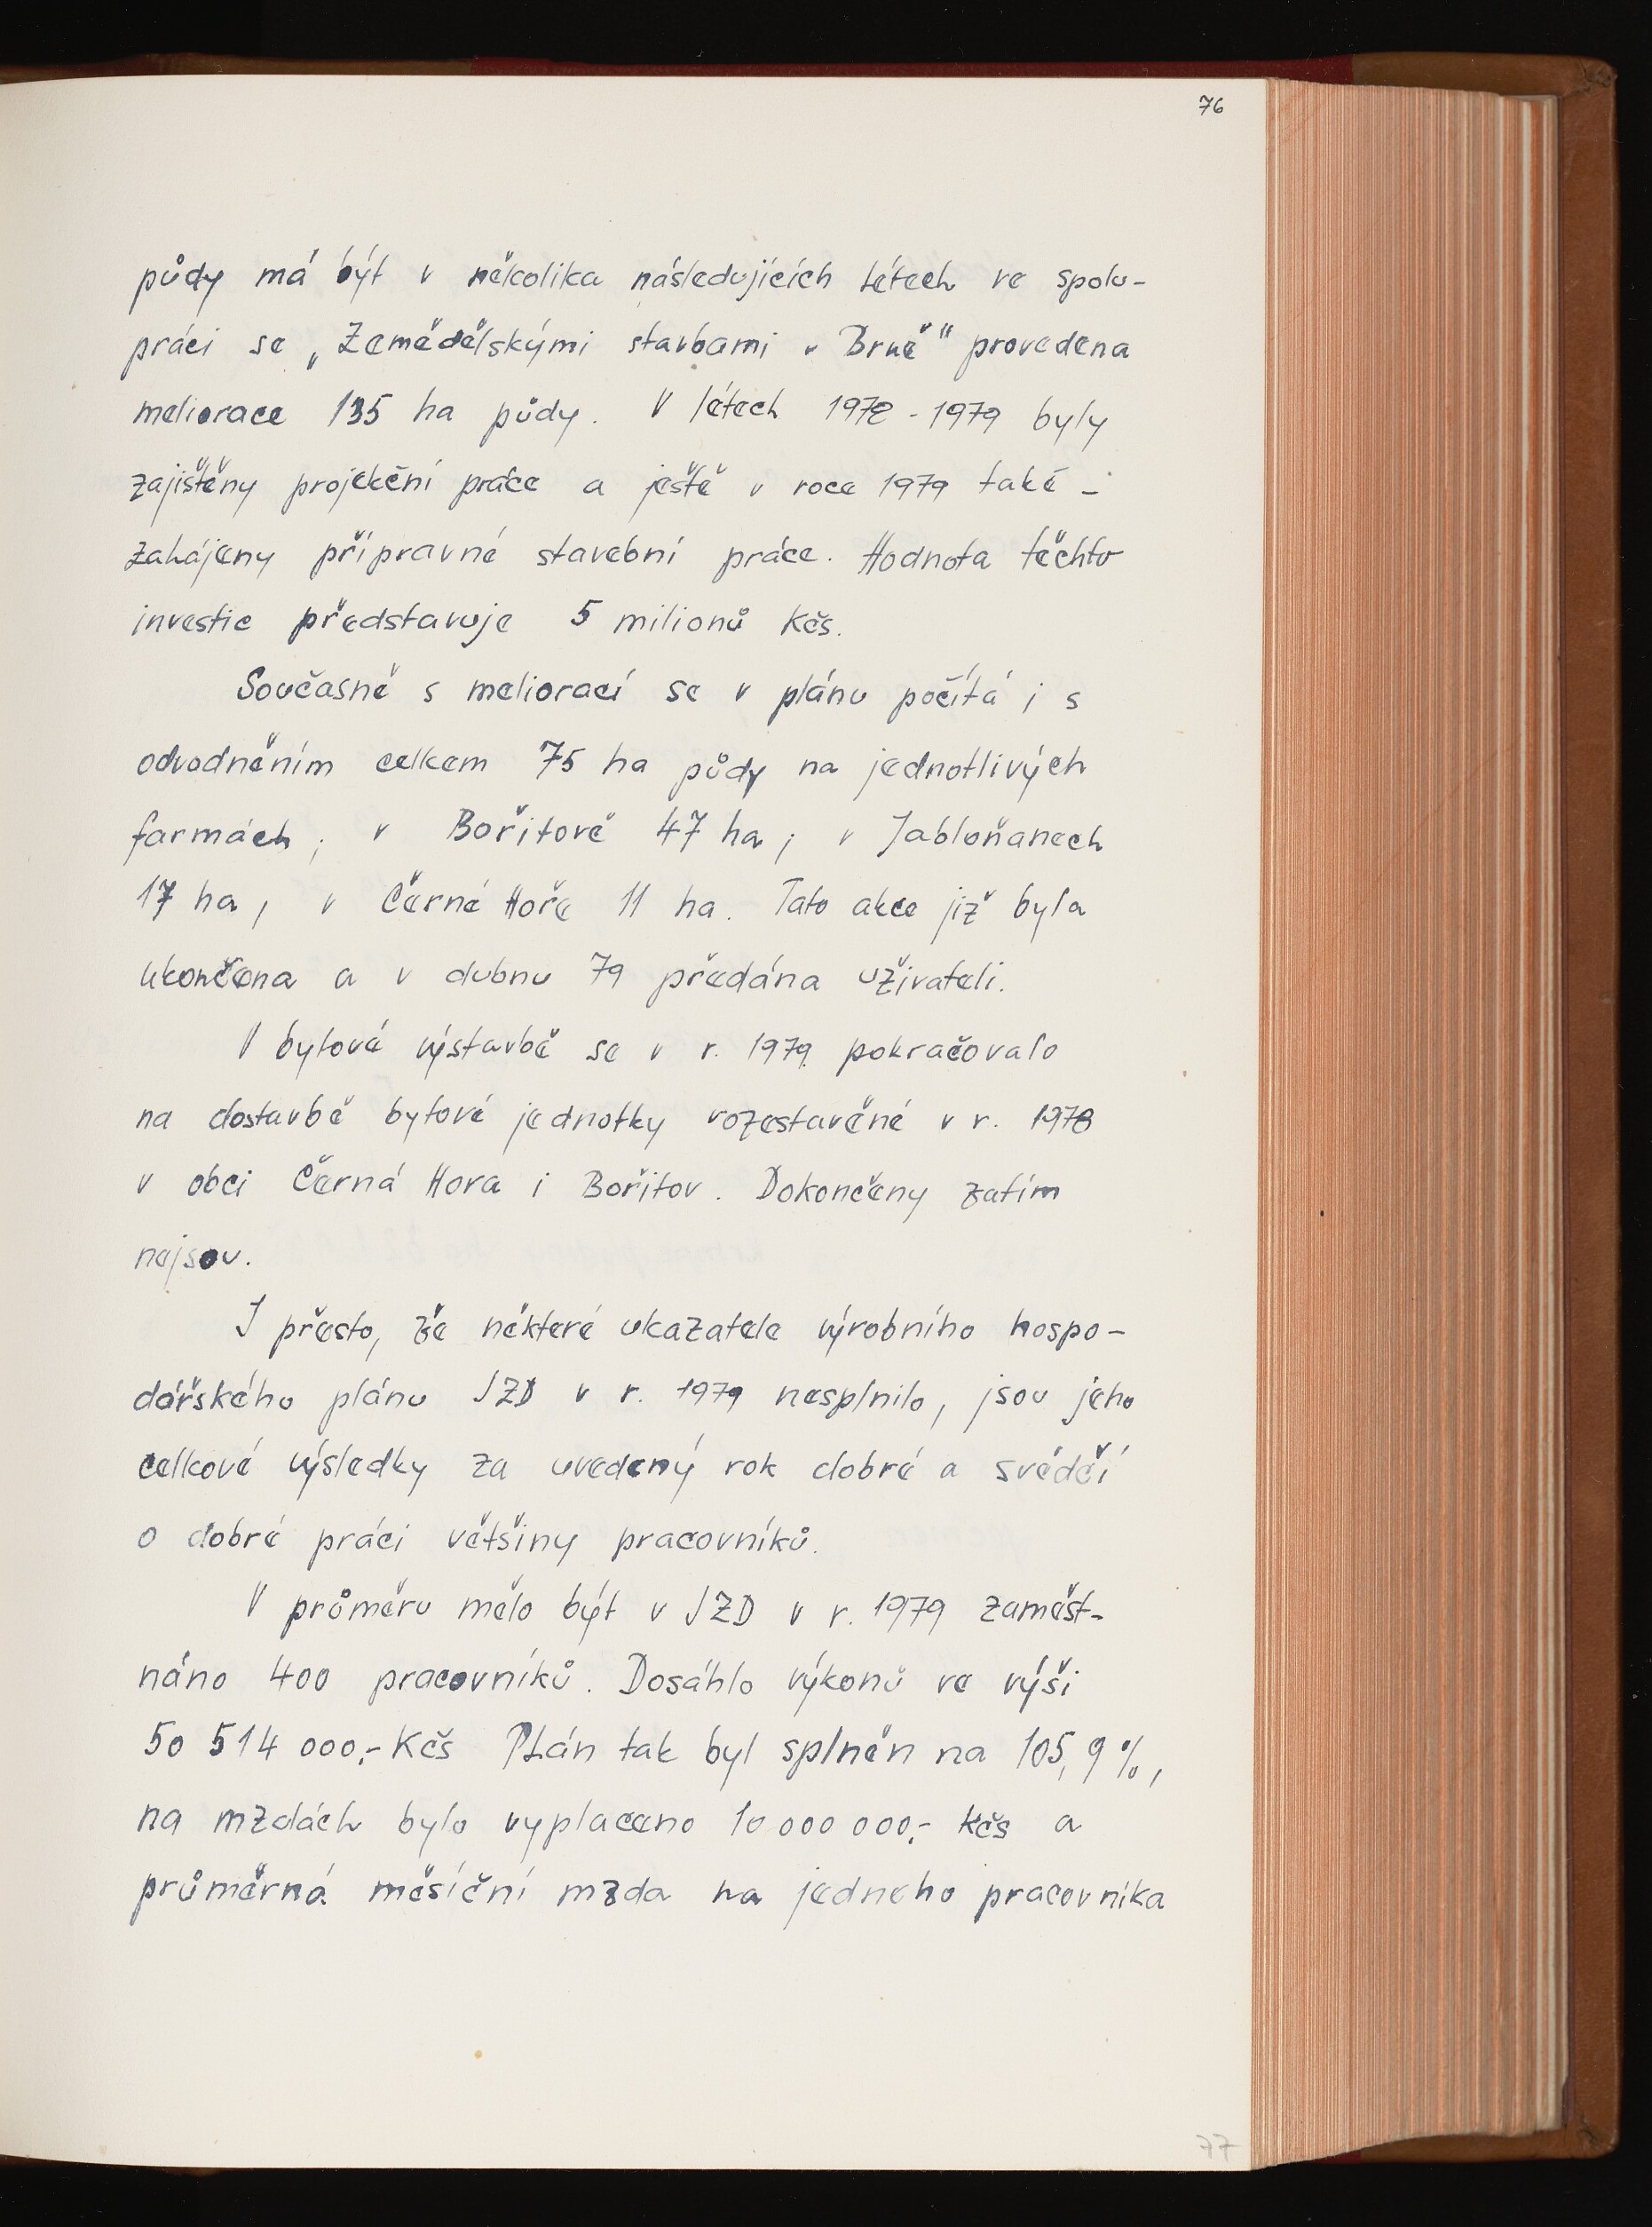 76
půdy má být v několika následujících létech ve spolu-
práci se „Zemědělskými stavbami v Brně" provedena
meliorace 135 ha půdy. V létech 1978 - 1979 byly
zajištěny projekční práce a ještě v roce 1979 také -
zahájeny přípravné stavební práce. Hodnota těchto
investic představuje 5 milionů Kčs.
Současně s meliorací se v plánu počítá i s
odvodněním celkem 75 ha půdy na jednotlivých
farmách; v Bořitově 47 ha; v Jabloňanech
17 ha, v Černé Hoře 11 ha. Tato akce již byla
ukončena a v dubnu 79 předána uživateli.
V bytové výstavbě se v r. 1979 pokračovalo
na dostavbě bytové jednotky rozestavěné v r. 1978
v obci Černá Hora i Bořitov. Dokončeny zatím
nejsou.
I přesto, že některé ukazatele výrobního hospo-
dářského plánu JZD v r. 1979 nesplnilo, jsou jeho
celkové výsledky za uvedený rok dobré a svědčí
o dobré práci většiny pracovníků.
V průměru mělo být v JZD v r. 1979 zaměst-
náno 400 pracovníků. Dosáhlo výkonů ve výši
50 514 000,- Kčs Plán tak byl splněn na 105,9 %,
na mzdách bylo vyplaceno 10 000 000,- Kčs a
průměrná měsíční mzda na jednoho pracovníka
77